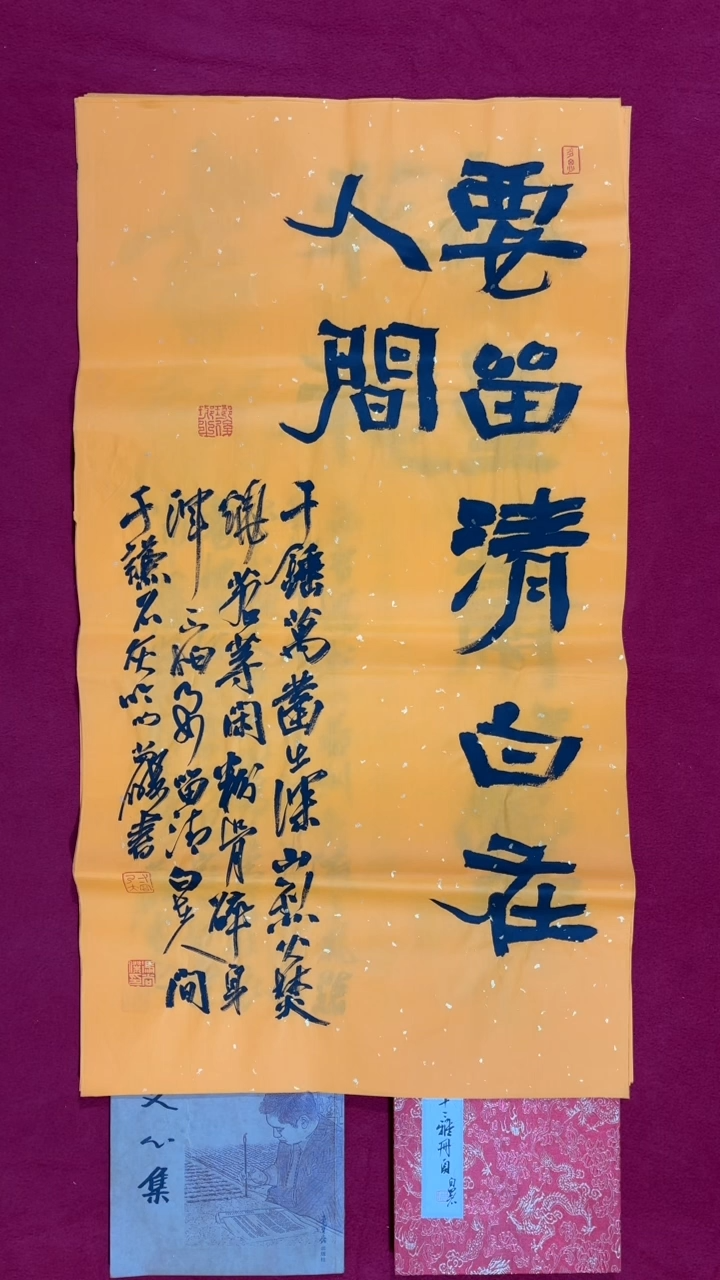 要留清白在
人間
千錘萬鑿出深山烈火焚
燒若等閑粉骨碎身
渾不怕要留清白在人间
于謙石灰吟
書
文心集